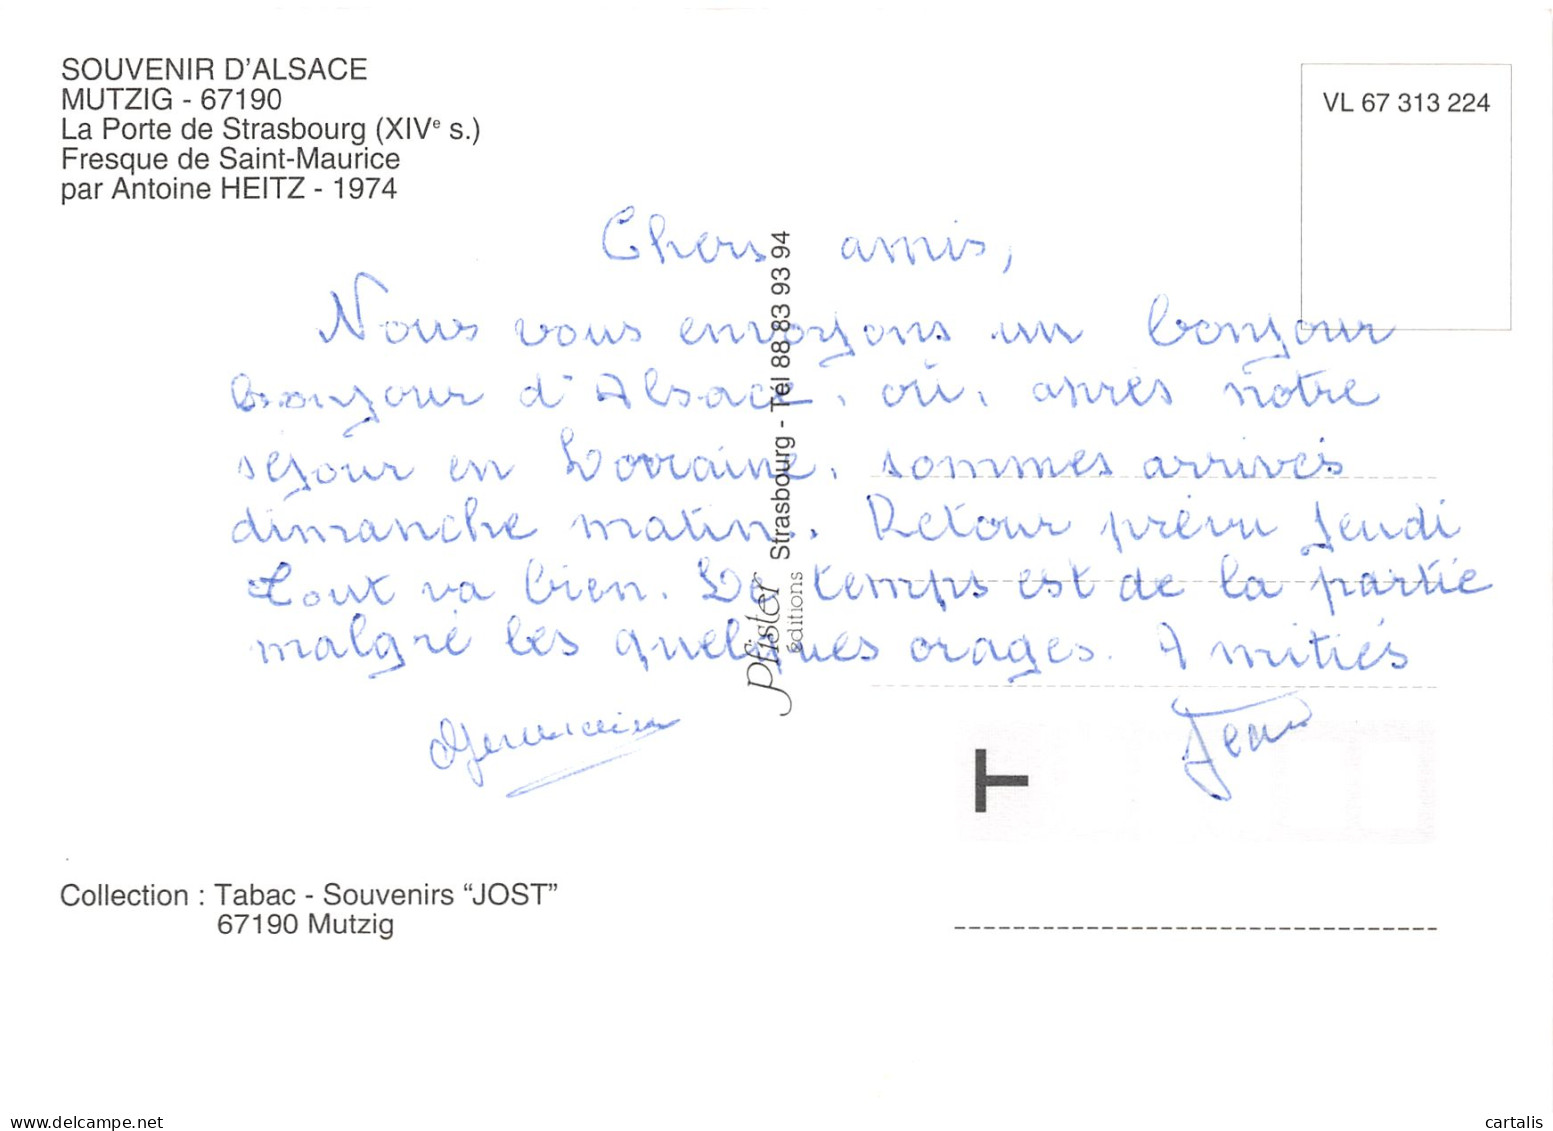 SOUVENIR D'ALSACE
MUTZIG - 67190
La Porte de Strasbourg (XIVe s.)
Fresque de Saint-Maurice
par Antoine HEITZ - 1974
VL 67 313 224
Chers amis,
Nous vous envoyons un bonjour
bonjour d'Alsace, où, après notre
séjour en Lorraine, sommes arrivés
dimanche matin. Retour prévu Jeudi
Tout va bien. Le temps est de la partie
malgré les quelques orages. Amitiés
Jean
Pfister éditions Strasbourg - Tél 88 83 93 94
T
Collection : Tabac - Souvenirs “JOST”
67190 Mutzig
www.delcampe.net
cartalis